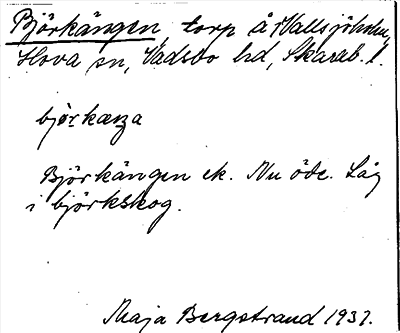 Björkängen, torp å Hallsjöholm,
Hova sn, Vadsbo hd, Skarab. l.
björkæŋa
Björkängen ek. Nu öde. Låg
i björkskog.
Maja Bergstrand 1937.